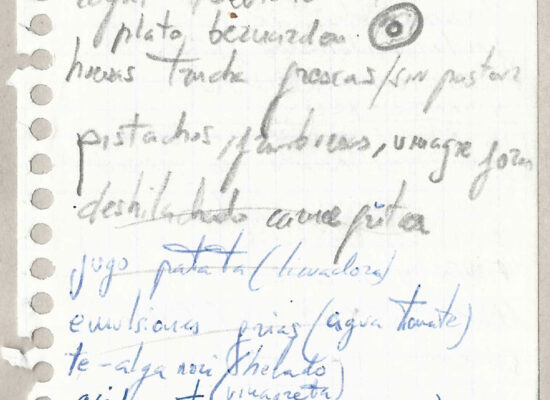 plato bernardon
huevas trucha frescas/sin pasteri
pistachos, frambuesas, vinagre
deshilachado carne frita
jugo patata (licuadora)
emulsiones frias (agua tomate)
te-alga nori/helado
(vinagreta)